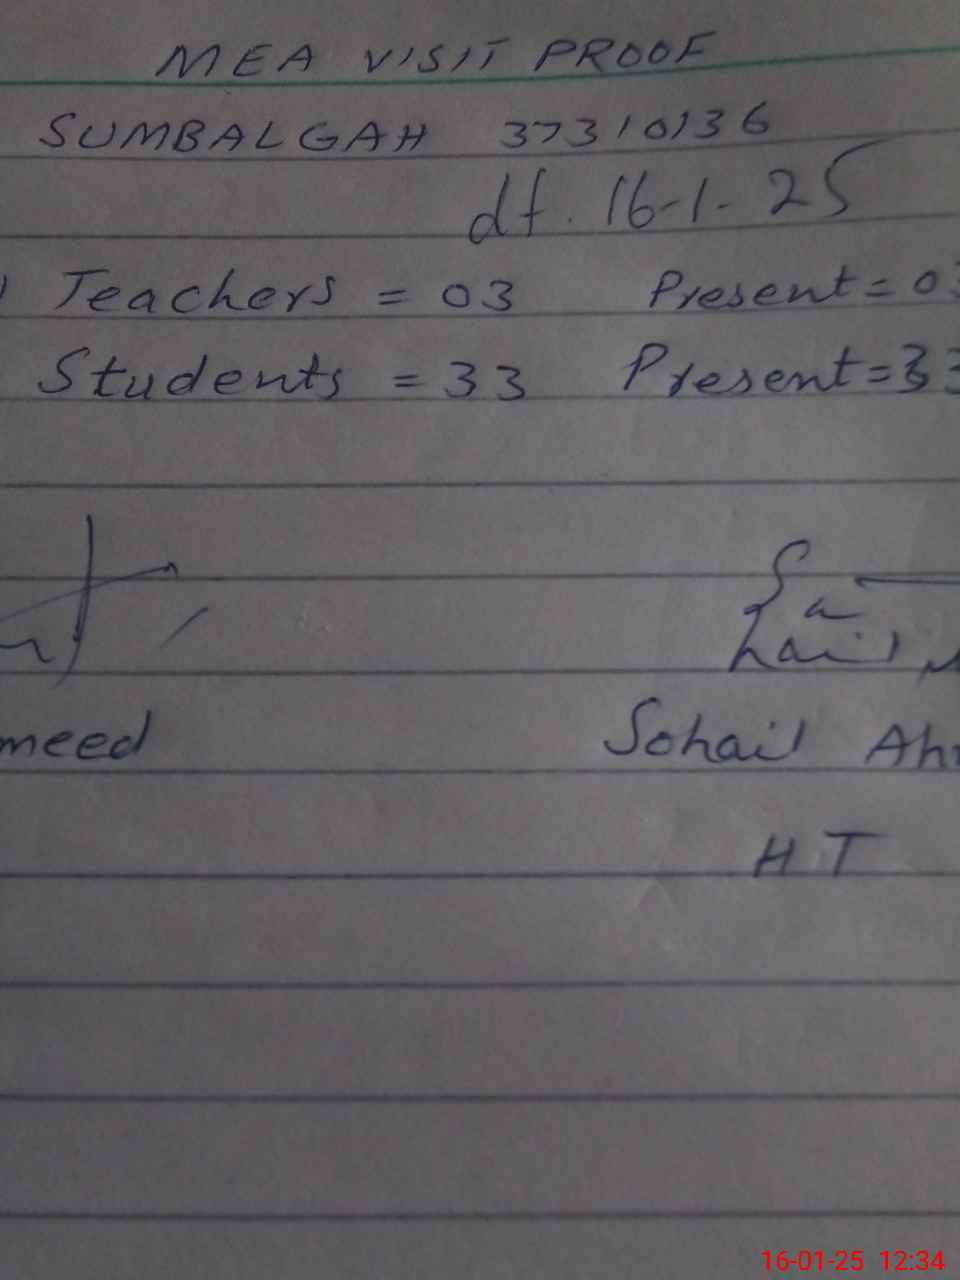 MEA VISIT PROOF
SUMBALGAH 37310136
dt. 16-1-25
Teachers = 03 Present = 03
Students = 33 Present = 33
meed Sohail Ah
HT
16-01-25 12:34